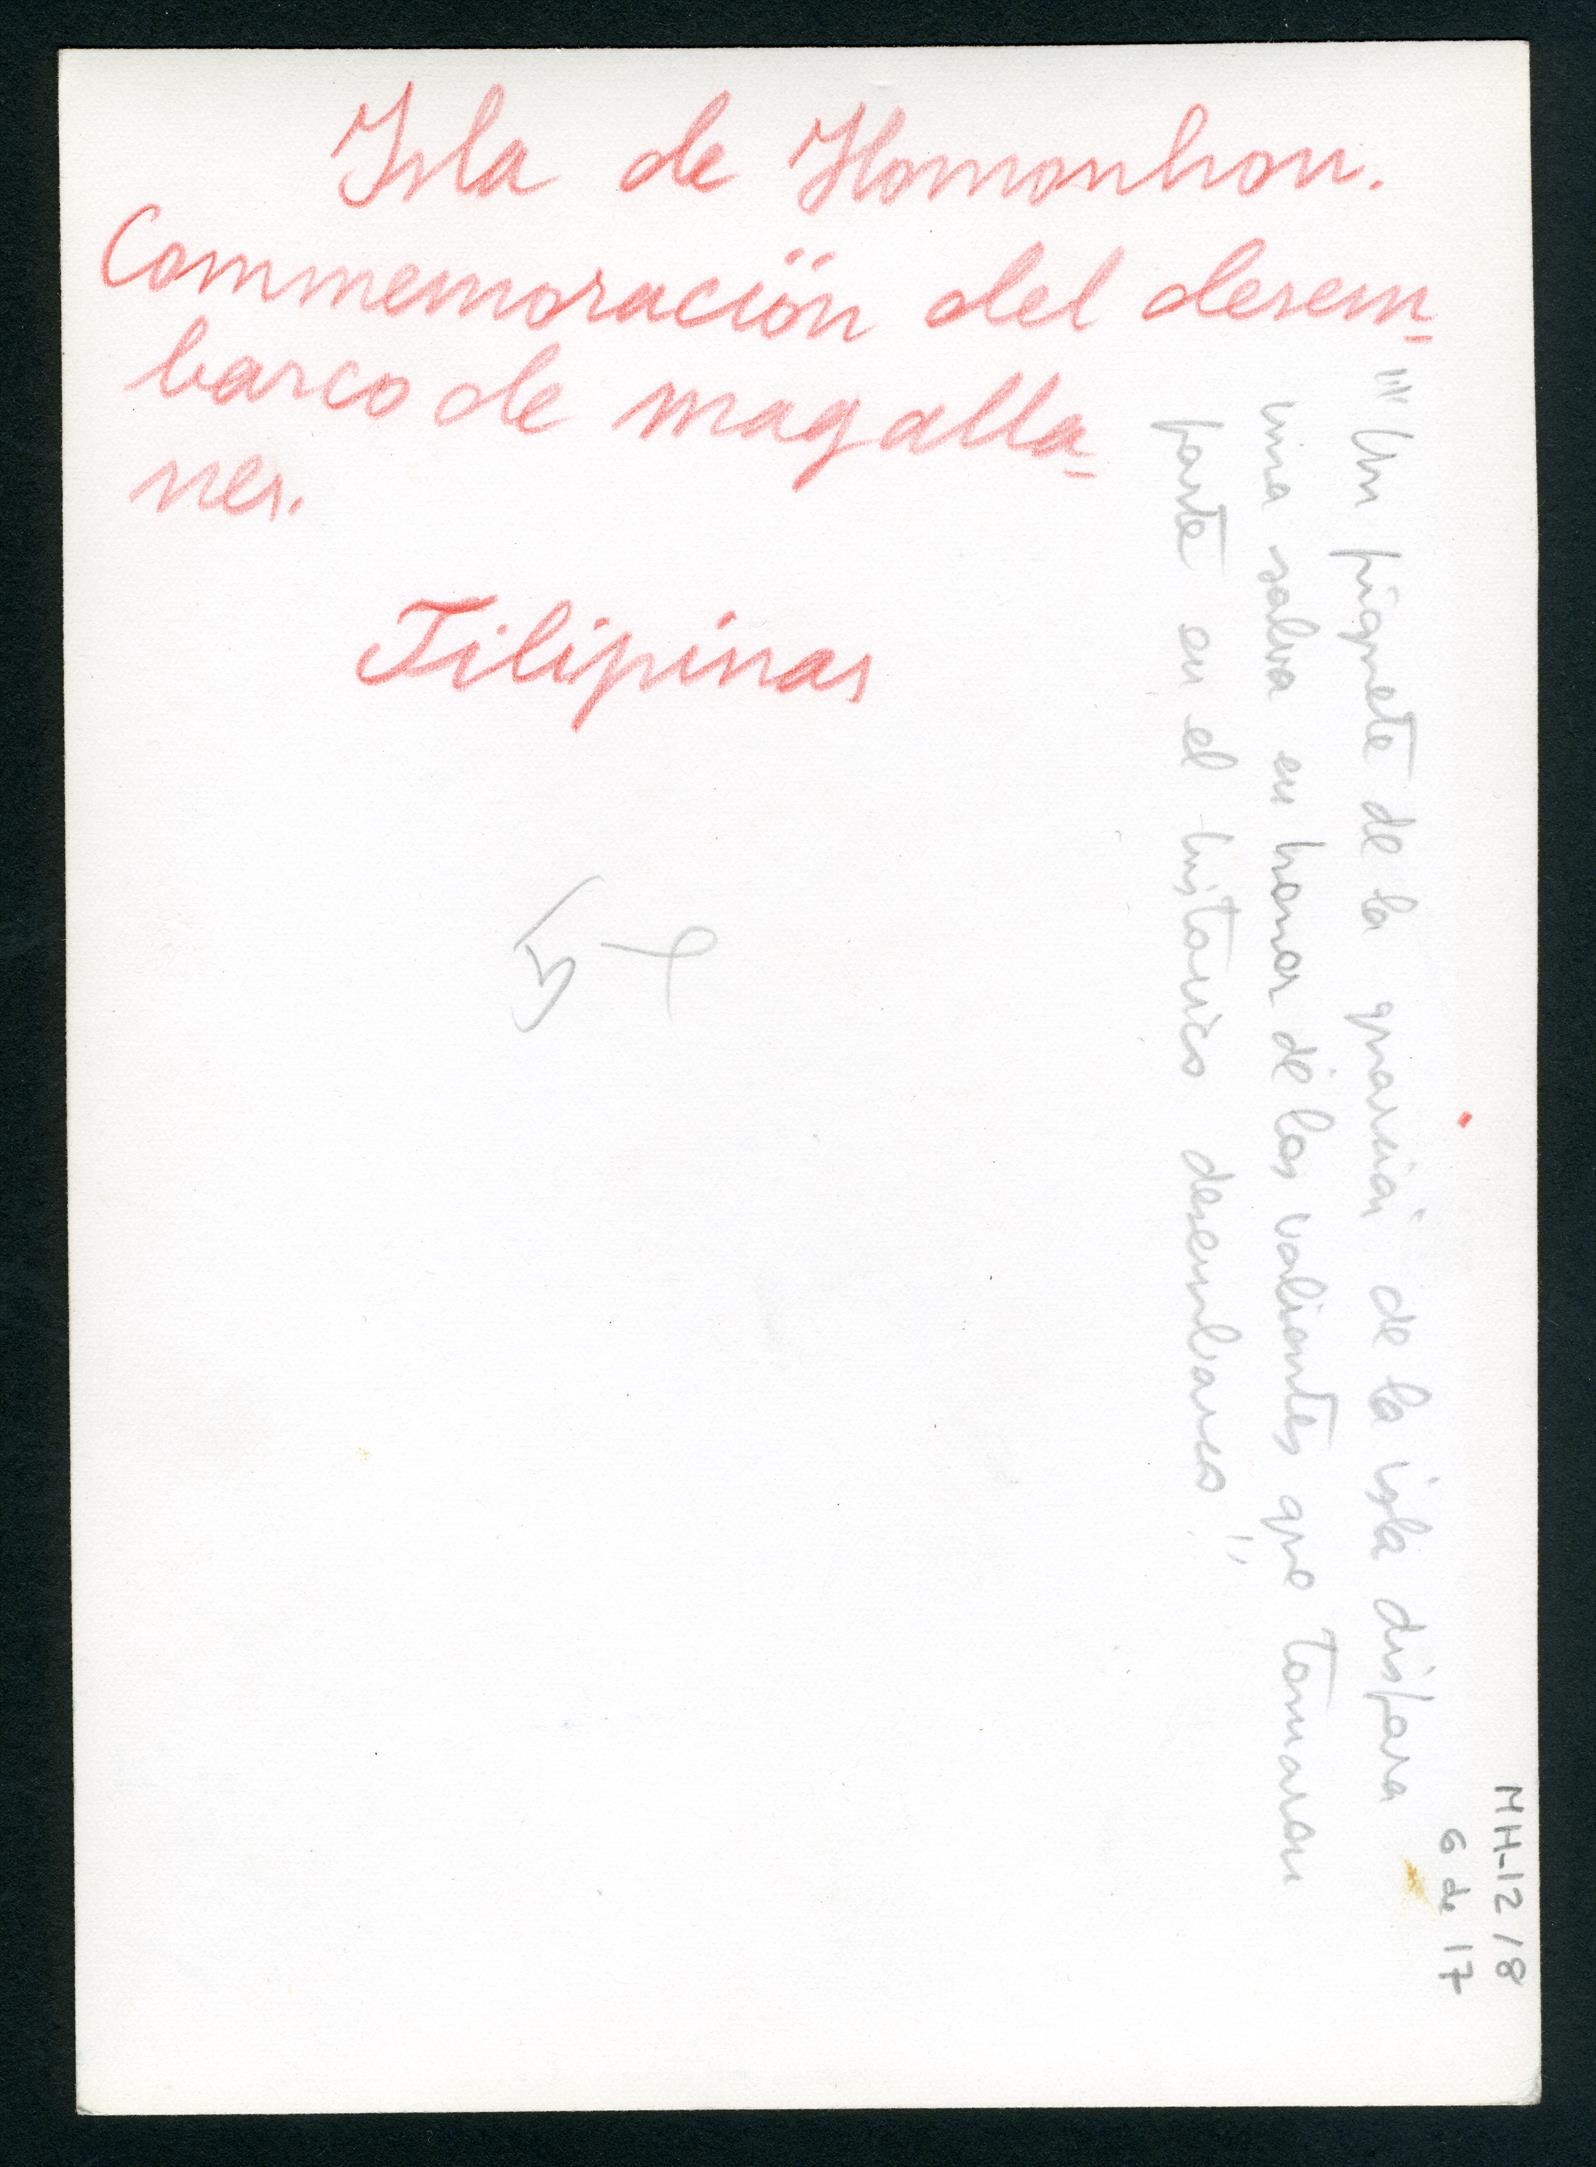 Isla de Homonhon.
Commemoración del desem-
barco de magalla-
nes.
Filipinas
"Un piquete de la guarnición de la isla dispara
una salva en honor de los valientes que tomaron
parte en el histórico desembarco"
MH-12/8
6 de 17